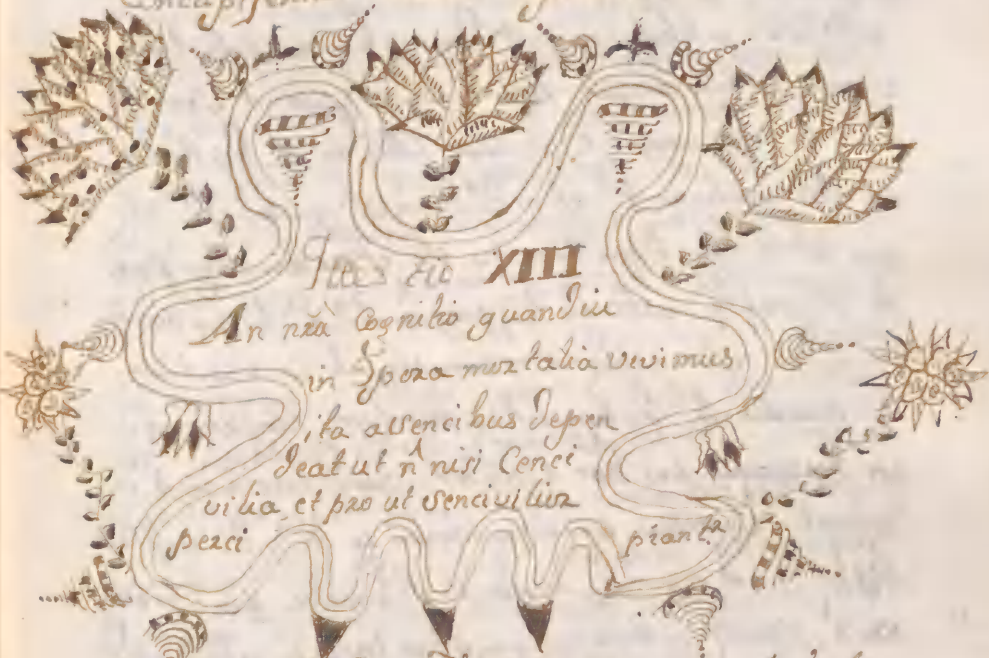 Questio XIII
An nrã Cognitio quandiu
in Cpora mortalia vivimus
ita a sencibus depen
deat ut ñ nisi Cenci
vilia, et pro ut sencivilior
perci piantr